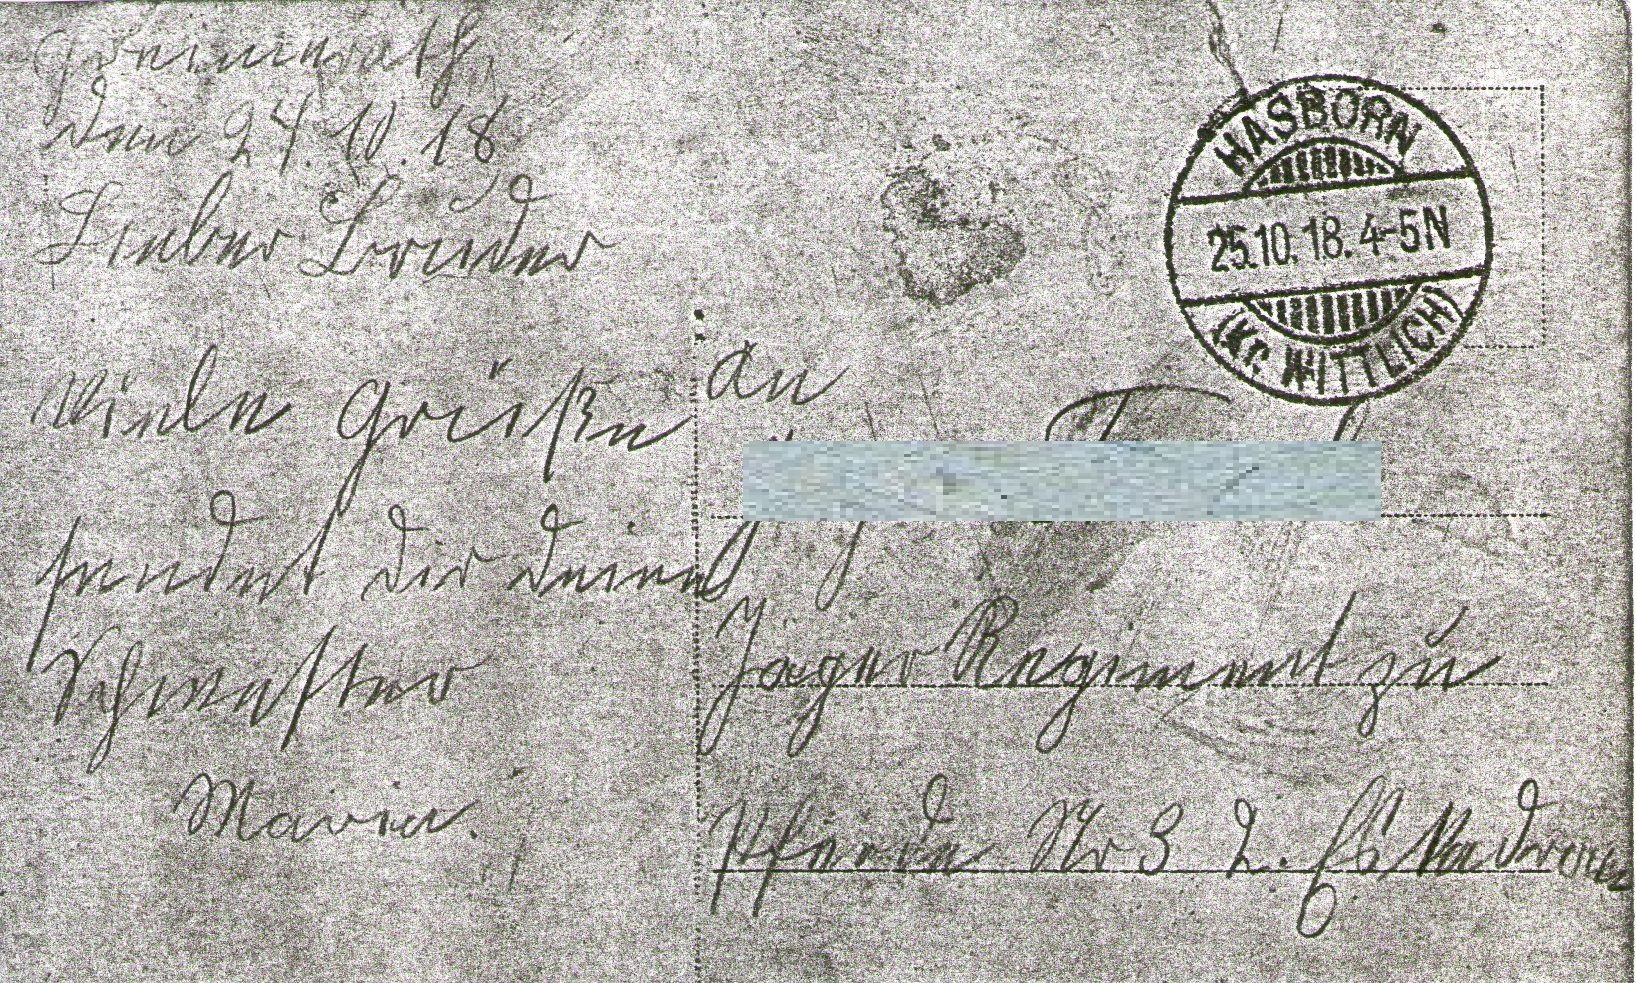 Greimerath,
den 24.10.18
Lieber Bruder
Viele Grüße
sendet dir deine
Schwester
Marie.
HASBORN
25.10.18. 4-5N
(Kr. WITTLICH)
An
Jäger Regiment zu
Pferde Nr 8 2. Eskadron